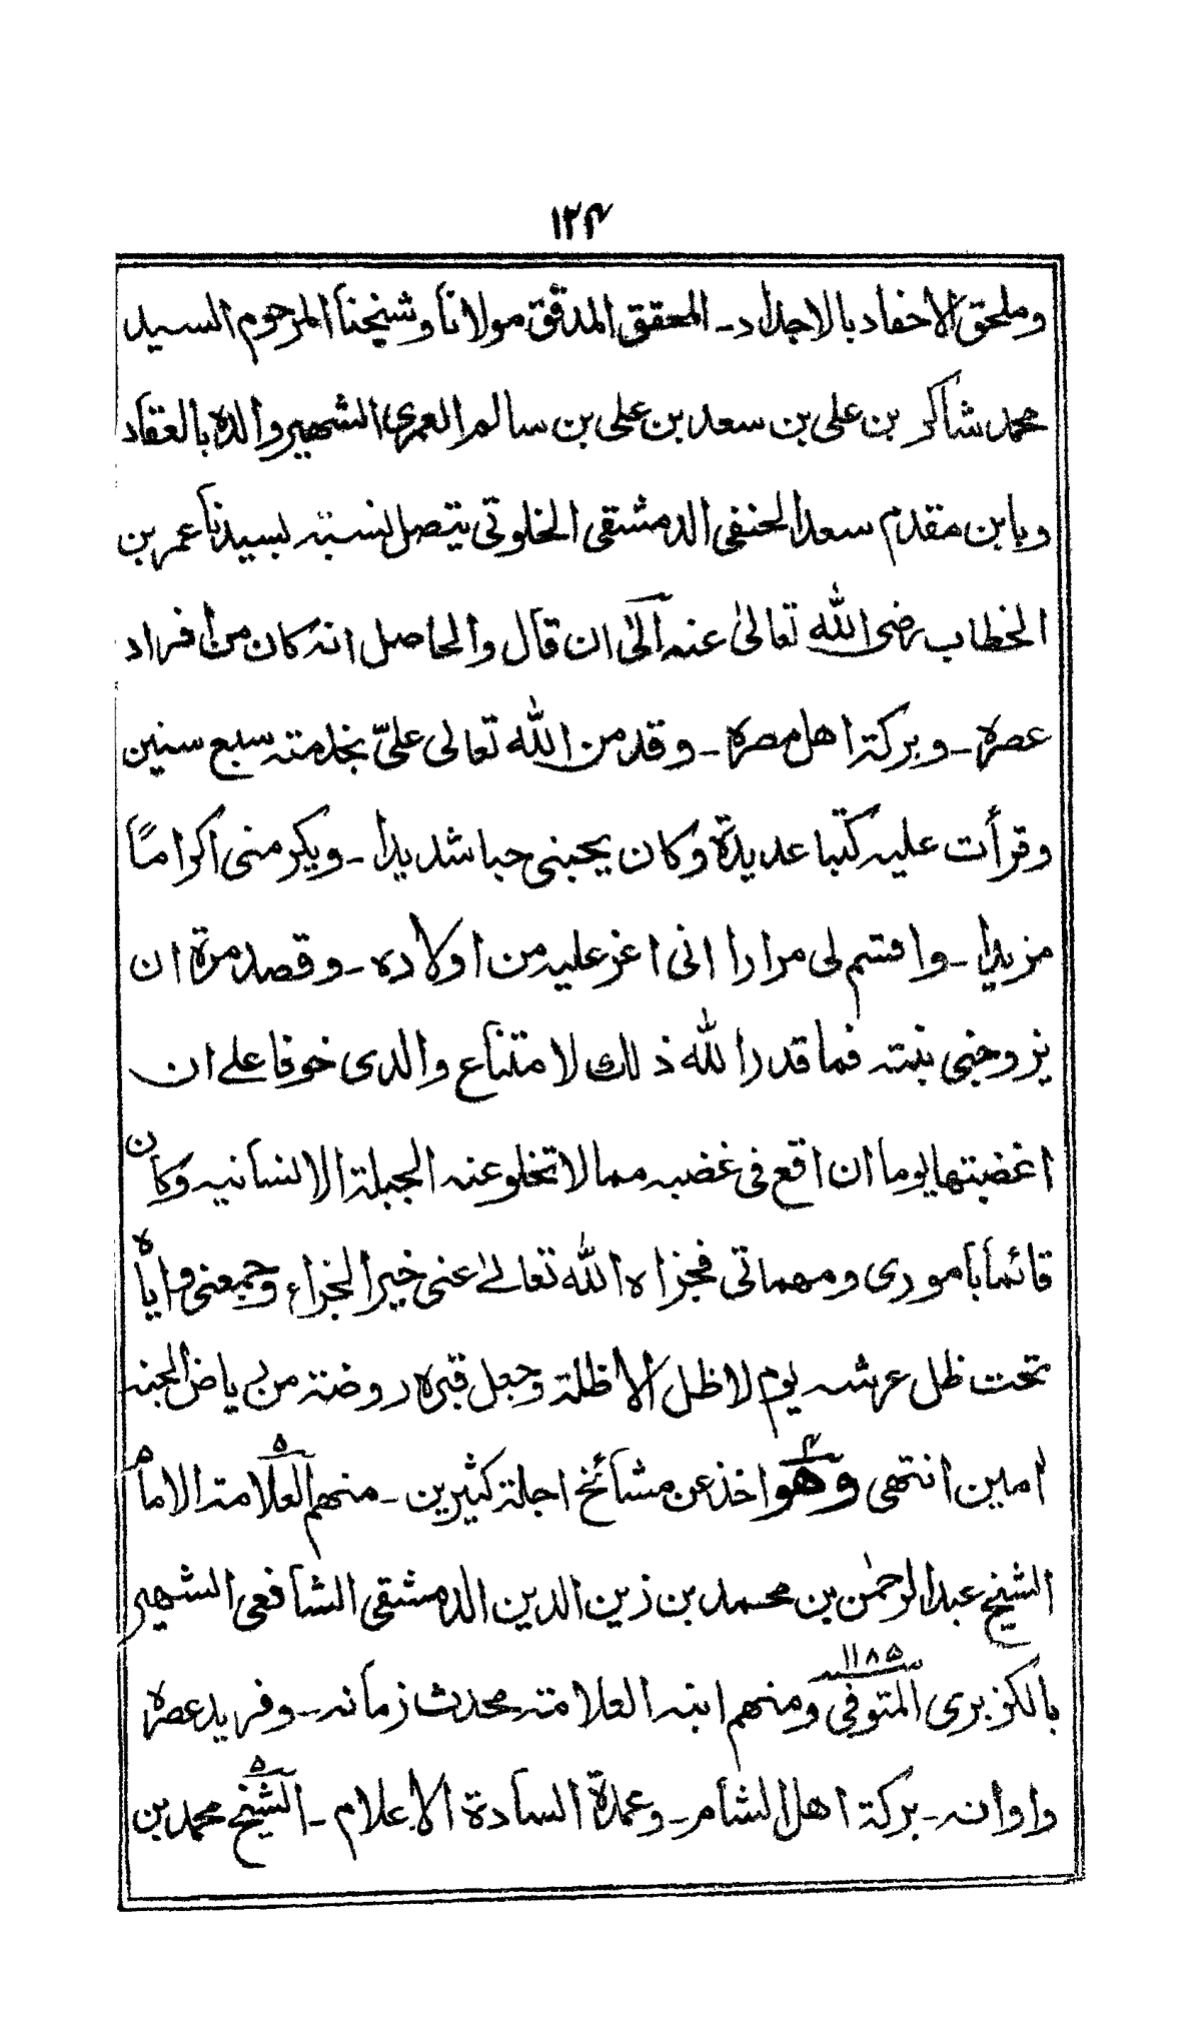 ١٢٤
وملحق الاحفاد بالاجداد ـ المحقق المدقق مولانا وشيخنا المرحوم السيد
محمد شاكر بن على بن سعد بن على بن سالم العمرى الشهير والده بالعقاد
وبابن مقدم سعد الحنفى الدمشقى الخلوتى يتصل نسبته بسيدنا عمر بن
الخطاب رضى الله تعالىٰ عنه آلىٰ ان قال والحاصل انه كان من افراد
عصره ـ وبركة اهل مصره ـ وقد من الله تعالى علىّ بخدمته سبع سنين
وقرأت عليه كتبا عديدة وكان يحبنى حبا شديدا ـ ويكرمنى اكراما
مزيدا ـ واقسم لى مرارا انى اعز عليه من اولاده ـ وقصد مرة ان
يزوجنى بنته فما قدر الله ذلك لامتناع والدى خوفا على ان
اغضبتها يوما ان اقع فى غضبه مما لا تخلو عنه الجبلة الانسانيه وكان
قائما بامورى ومهماتى فجزاه الله تعالىٰ عنى خير الجزاء وجمعنى واياه
تحت ظل عرشه يوم لا ظل الا ظله وجعل قبره روضة من رياض الجنه
اٰمين انتهى وهو اخذ عن مشائخ اجلة كثيرين ـ منهم العلامة الامام
الشيخ عبد الرحمٰن بن محمد بن زين الدين الدمشقى الشافعى الشهير
بالكزبرى المتوفى ١١٨٥ ومنهم ابنه العلامة محدث زمانه ـ وفريد عصره
واوانه ـ بركة اهل الشام ـ وعمدة السادة الاعلام ـ الشيخ محمد بن